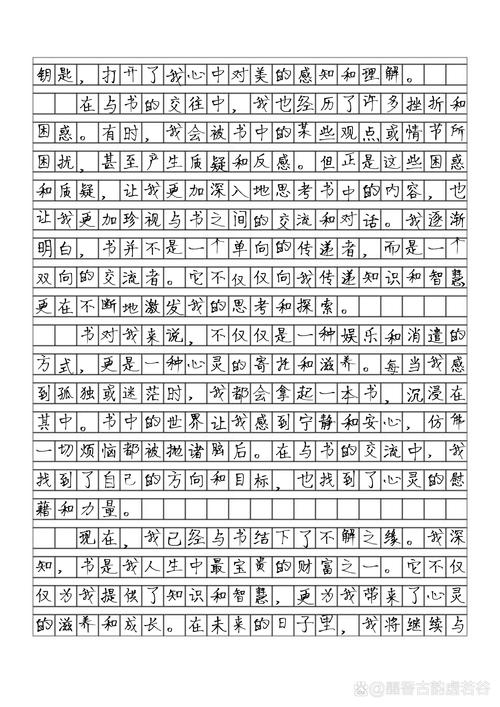 钥匙，打开了我心中对美的感知和理解。
在与书的交往中，我也经历了许多挫折和
困惑。有时，我会被书中的某些观点或情节所
困扰，甚至产生质疑和反感。但正是这些困惑
和质疑，让我更加深入地思考书中的内容，也
让我更加珍视与书之间的交流和对话。我逐渐
明白，书并不是一个单向的传递者，而是一个
双向的交流者。它不仅仅向我传递知识和智慧
更在不断地激发我的思考和探索。
书对我来说，不仅仅是一种娱乐和消遣的
方式，更是一种心灵的寄托和滋养。每当我感
到孤独或迷茫时，我都会拿起一本书，沉浸在
其中。书中的世界让我感到宁静和安心，仿佛
一切烦恼都被抛诸脑后。在与书的交流中，我
找到了自己的方向和目标，也找到了心灵的慰
藉和力量。
现在，我已经与书结下了不解之缘。我深
知，书是我人生中最宝贵的财富之一。它不仅
仅为我提供了知识和智慧，更为我带来了心灵
的滋养和成长。在未来的日子里，我将继续与